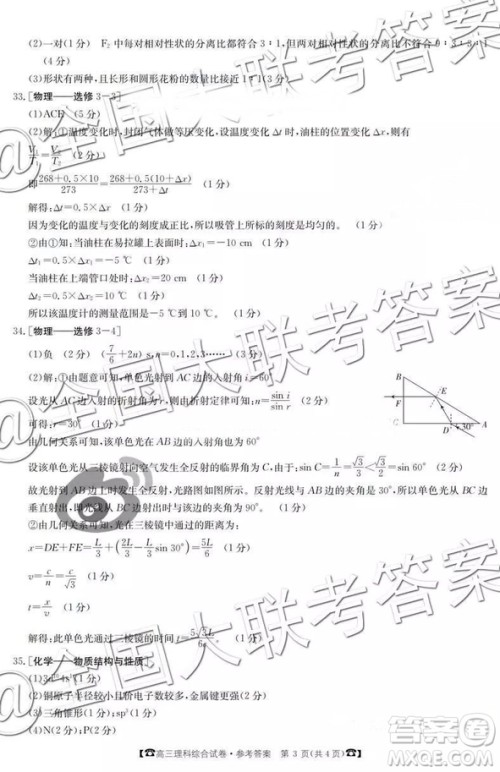 (2)一对(1分) F₂中每对相对性状的分离比都符合3:1,但两对相对性状的分离比不符合9:3:3:1
(4分)
(3)形状有两种,且长形和圆形花粉的数量比接近1:1(3分)
33.[物理——选修3-3]
(1)ACE (5分)
(2)解:①温度变化时,封闭气体做等压变化,设温度变化Δt时,油柱的位置变化Δx,则有
V₁/T₁=V₂/T₂ (2分)
即(268+0.5×10)/273=(268+0.5(10+Δx))/(273+Δt) (1分)
解得:Δt=0.5×Δx (1分)
因为变化的温度与变化的刻度成正比,所以吸管上所标的刻度是均匀的。(1分)
②由①知:当油柱在易拉罐上表面时:Δx₁=-10 cm (1分)
Δt₁=0.5×Δx₁=-5 ℃ (1分)
当油柱在上端管口处时:Δx₂=20 cm (1分)
Δt₂=0.5×Δx₂=10 ℃ (1分)
所以,该温度计的测量范围是-5 ℃到10 ℃ (1分)
34.[物理——选修3-4]
(1)负 (2分) (7/6+2n) s,n=0,1,2,3……(3分)
(2)解:①由题意可知,单色光射到AC边的入射角i=60°
设光从AC边入射的折射角为r,则由折射定律可知:n=sin i/sin r (2分)
可得:r=30° (1分)
由几何关系可知,该单色光在AB边的入射角也为60°
设该单色光从三棱镜射向空气发生全反射的临界角为C,由于:sin C=1/n=√3/3<√3/2=sin 60° (1分)
故光射到AB边时发生全反射,光路图如图所示。该反射光线与AB边的夹角为30°,所以光从BC边
垂直射出,即光线与BC边的夹角为90° (1分)
②由几何关系可知,光在三棱镜中通过的距离为:
x=DE+FE=L/3+(2L/3-L/3 sin 30°)=5L/6 (1分)
v=c/n=c/√3 (1分)
t=x/v (1分)
解得:此单色光通过三棱镜的时间t=5√3L/6c (1分)
35.[化学——物质结构与性质]
(1)3d¹⁰4s¹ (1分)
(2)铜原子半径较小且价电子数较多,金属键更强 (2分)
(3)三角锥形(1分);sp³(1分)
(4)N(2分);P(2分)
A
B
C
D
E
F
30°
☎高三理科综合试卷·参考答案 第 3 页(共 4 页)☎
@全国大联考答案
@全国大联考答案
@全国大联考答案